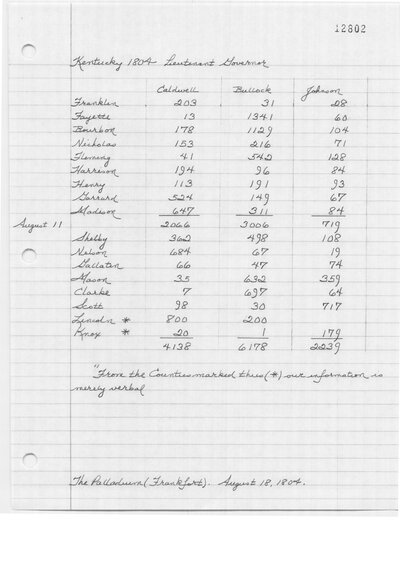 12802
Kentucky 1804 Lieutenant Governor
Caldwell Bullock Johnson
Franklin 203 31 28
Fayette 13 1341 60
Bourbon 178 1129 104
Nicholas 153 216 71
Fleming 41 542 128
Harrison 194 96 84
Henry 113 191 93
Garrard 524 149 67
Madison 647 311 84
August 11 2066 3006 719
Shelby 362 498 108
Nelson 684 67 19
Gallatin 66 47 74
Mason 35 632 359
Clarke 7 697 64
Scott 98 30 717
Lincoln * 800 200
Knox * 20 1 179
4138 6178 2239
"From the Counties marked thus (*) our information is
merely verbal
The Palladium (Frankfort). August 18, 1804.